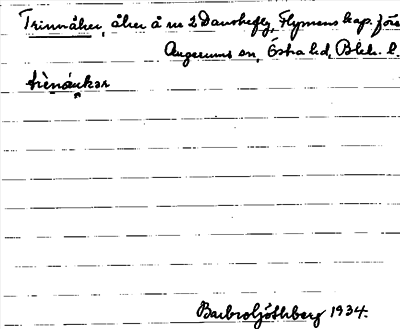 Trinnåker, åker å nr 2 Davshegly, Flymens kap. förs
Augerums sn, Östra hd, Blek. l.
trènåukər
Barbro Ljöthberg 1934.